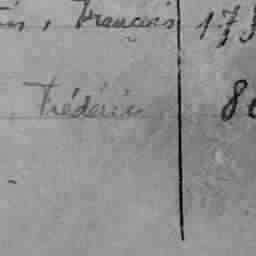 , François 173
Frédéric 80